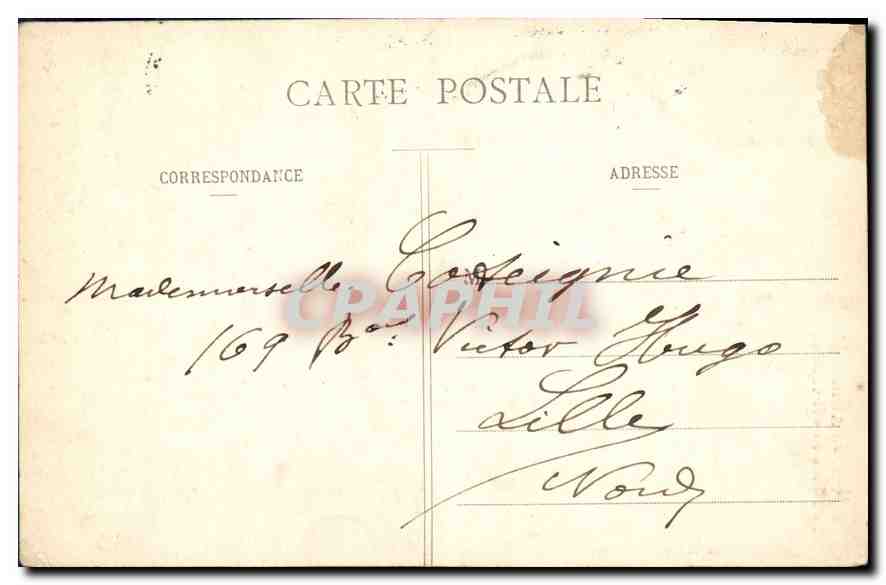 CARTE POSTALE
CORRESPONDANCE
ADRESSE
Mademoiselle Costeignie
CPAPHIL
169 Bard Victor Hugo
Lille
Nord